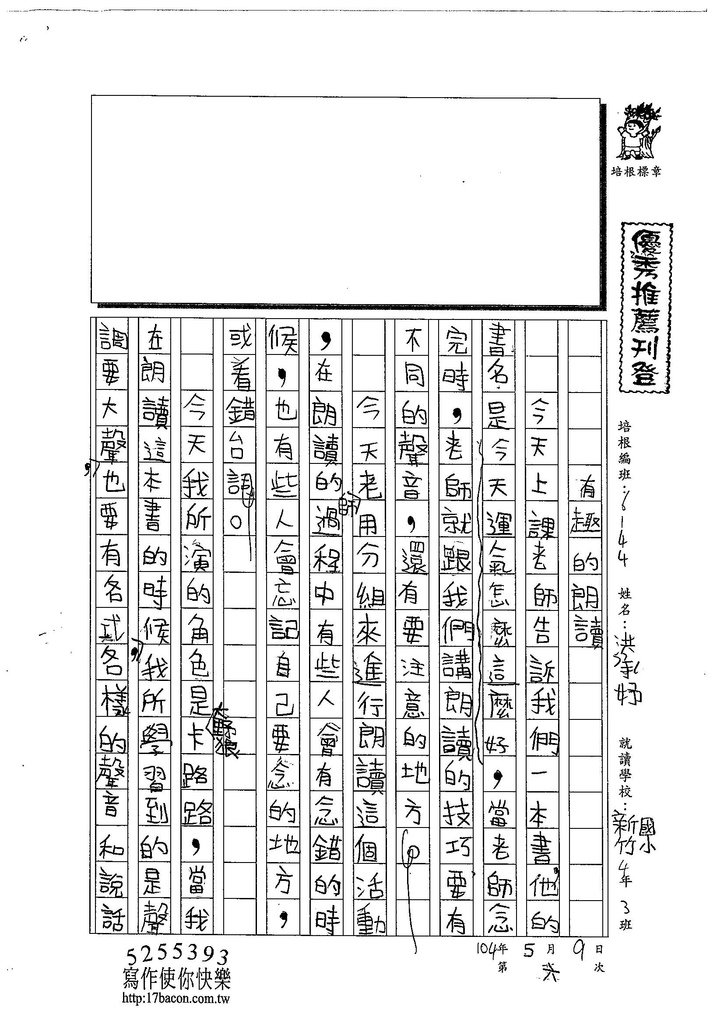 培根標章
優秀推薦刊登
培根編班：6144 姓名：洪 妤 就讀學校：新竹國小 4年 3班
104年 5月 9日
第 六 次
有趣的朗讀
今天上課老師告訴我們一本書他的
書名是今天運氣怎麼這麼好，當老師念
完時，老師就跟我們講朗讀的技巧要有
不同的聲音，還有要注意的地方。
今天老師用分組來進行朗讀這個活動
，在朗讀的過程中有些人會有念錯的時
候，也有些人會忘記自己要念的地方，
或着錯台詞。
今天我所演的角色是大野狼卡路路，當我
在朗讀這本書的時候，我所學習到的是聲
調要大聲，也要有各式各樣的聲音和說話
5255393
寫作使你快樂
http:17bacon.com.tw